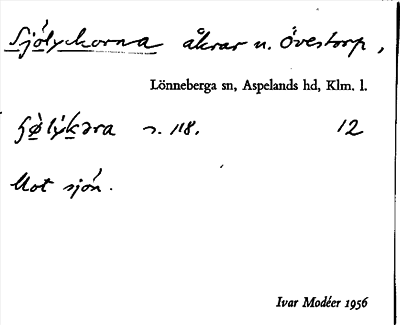 Sjölyckorna åkrar u. Övestorp,
Lönneberga sn, Aspelands hd, Klm. l.
s. 118. 12
Mot sjön.
Ivar Modéer 1956